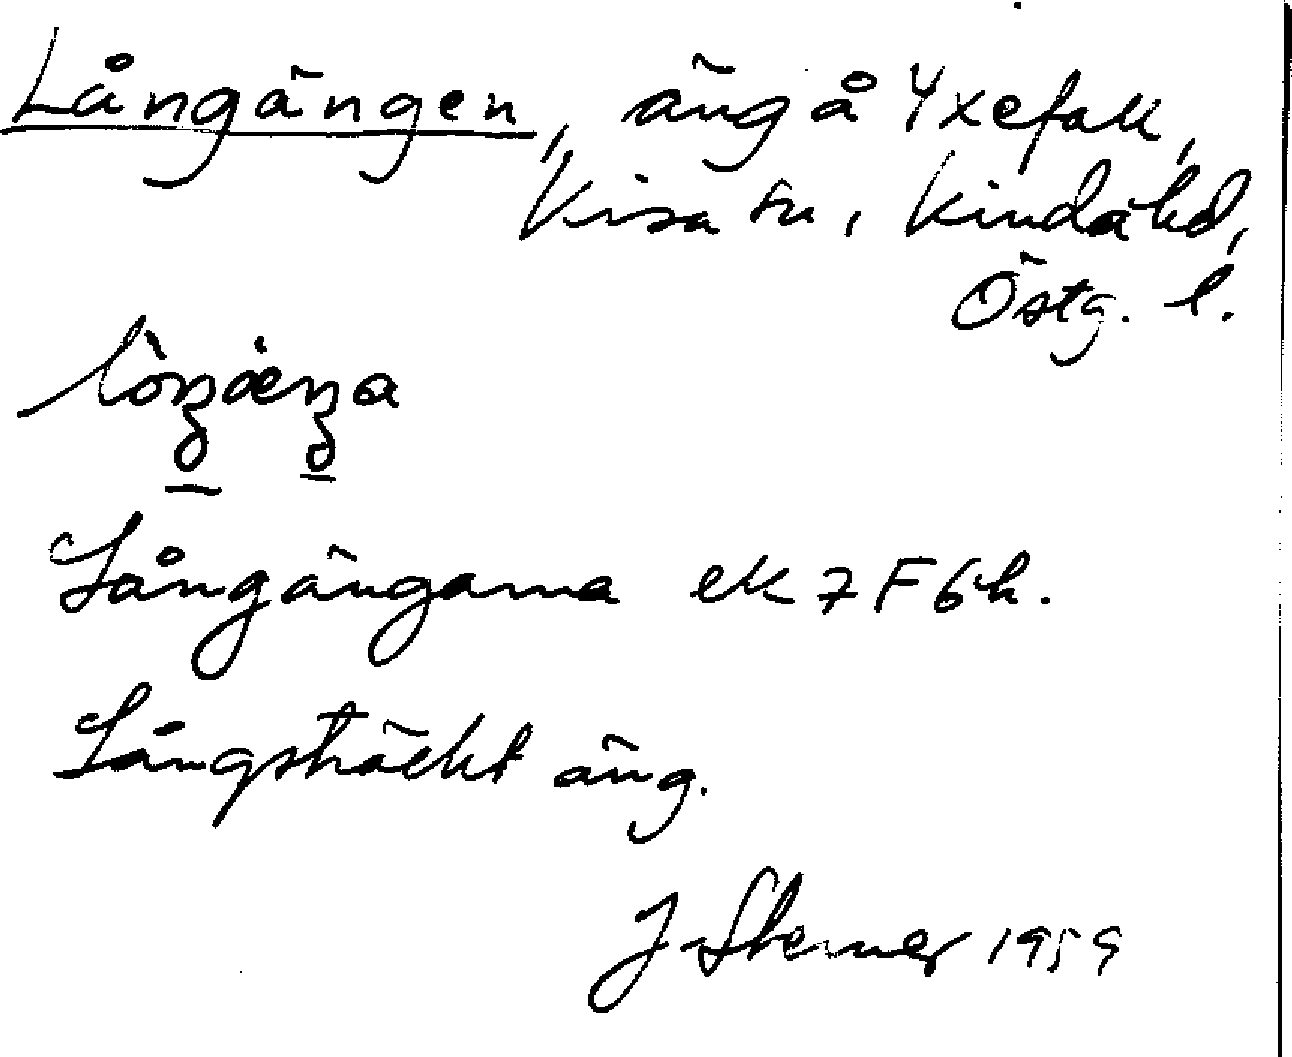 Långängen, äng å Yxefall,
Kisa sn, Kinda hd,
Östg. l.
Långängarna ek 7 F 6 h.
Långsträckt äng.
J. Sterner 1959